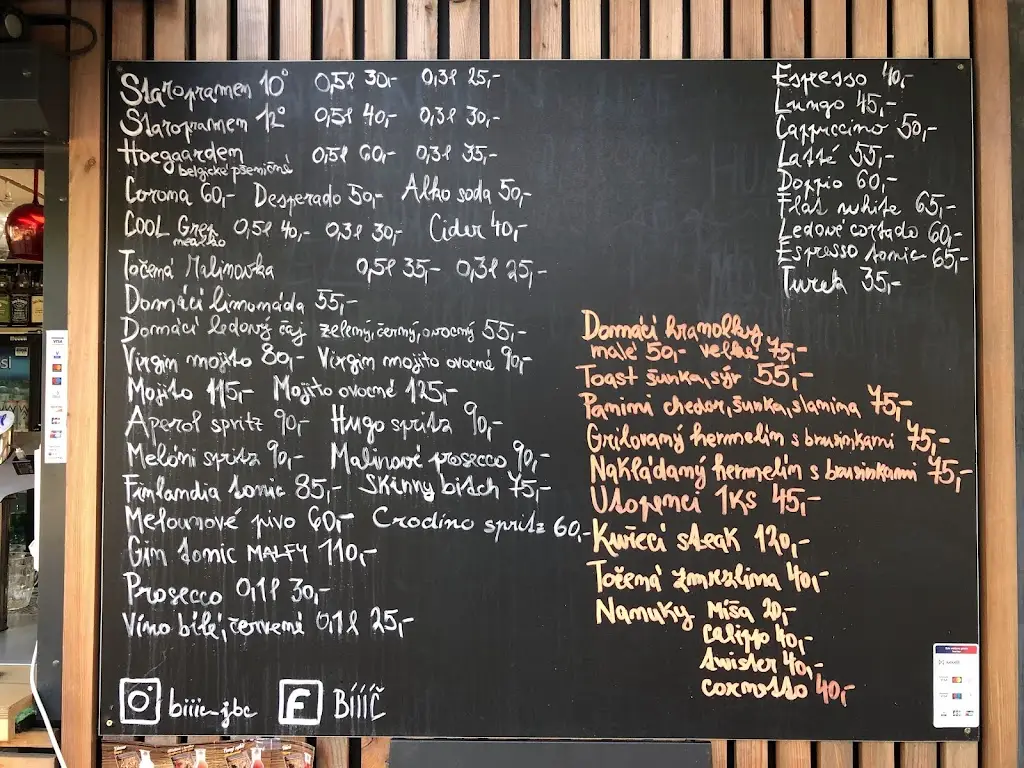 Staropramen 10° 0,5l 30,- 0,3l 25,-
Staropramen 12° 0,5l 40,- 0,3l 30,-
Hoegaarden 0,5l 60,- 0,3l 35,-
belgické pšeničné
Corona 60,- Desperado 50,- Alko soda 50,-
COOL Grep 0,5l 40,- 0,3l 30,- Cider 40,-
nealko
Točená Malinovka 0,5l 35,- 0,3l 25,-
Domácí limonáda 55,-
Domácí ledový čaj zelený, černý, ovocný 55,-
Virgin mojito 80,- Virgin mojito ovocné 90,-
Mojito 115,- Mojito ovocné 125,-
Aperol spritz 90,- Hugo spritz 90,-
Meloni spritz 90,- Malinové prosecco 90,-
Finlandia tonic 85,- Skinny bitch 75,-
Melounové pivo 60,- Crodino spritz 60,-
Gin tonic MALFY 110,-
Prosecco 0,1l 30,-
Víno bílé, červené 0,1l 25,-
biiic_jbc BÍÍÍČ
Espresso 40,-
Lungo 45,-
Cappuccino 50,-
Latté 55,-
Doppio 60,-
Flat white 65,-
Ledové cortado 60,-
Espresso tonic 65,-
Turek 35,-
Domácí hranolky
malé 50,- velké 75,-
Toast šunka, sýr 55,-
Panini chedar, šunka, slanina 75,-
Grilovaný hermelín s brusinkami 75,-
Nakládaný hermelín s brusinkami 75,-
Utopenci 1KS 45,-
Kuřecí steak 120,-
Točená zmrzlina 40,-
Nanuky Míša 20,-
Calippo 40,-
twister 40,-
cornetto 40,-